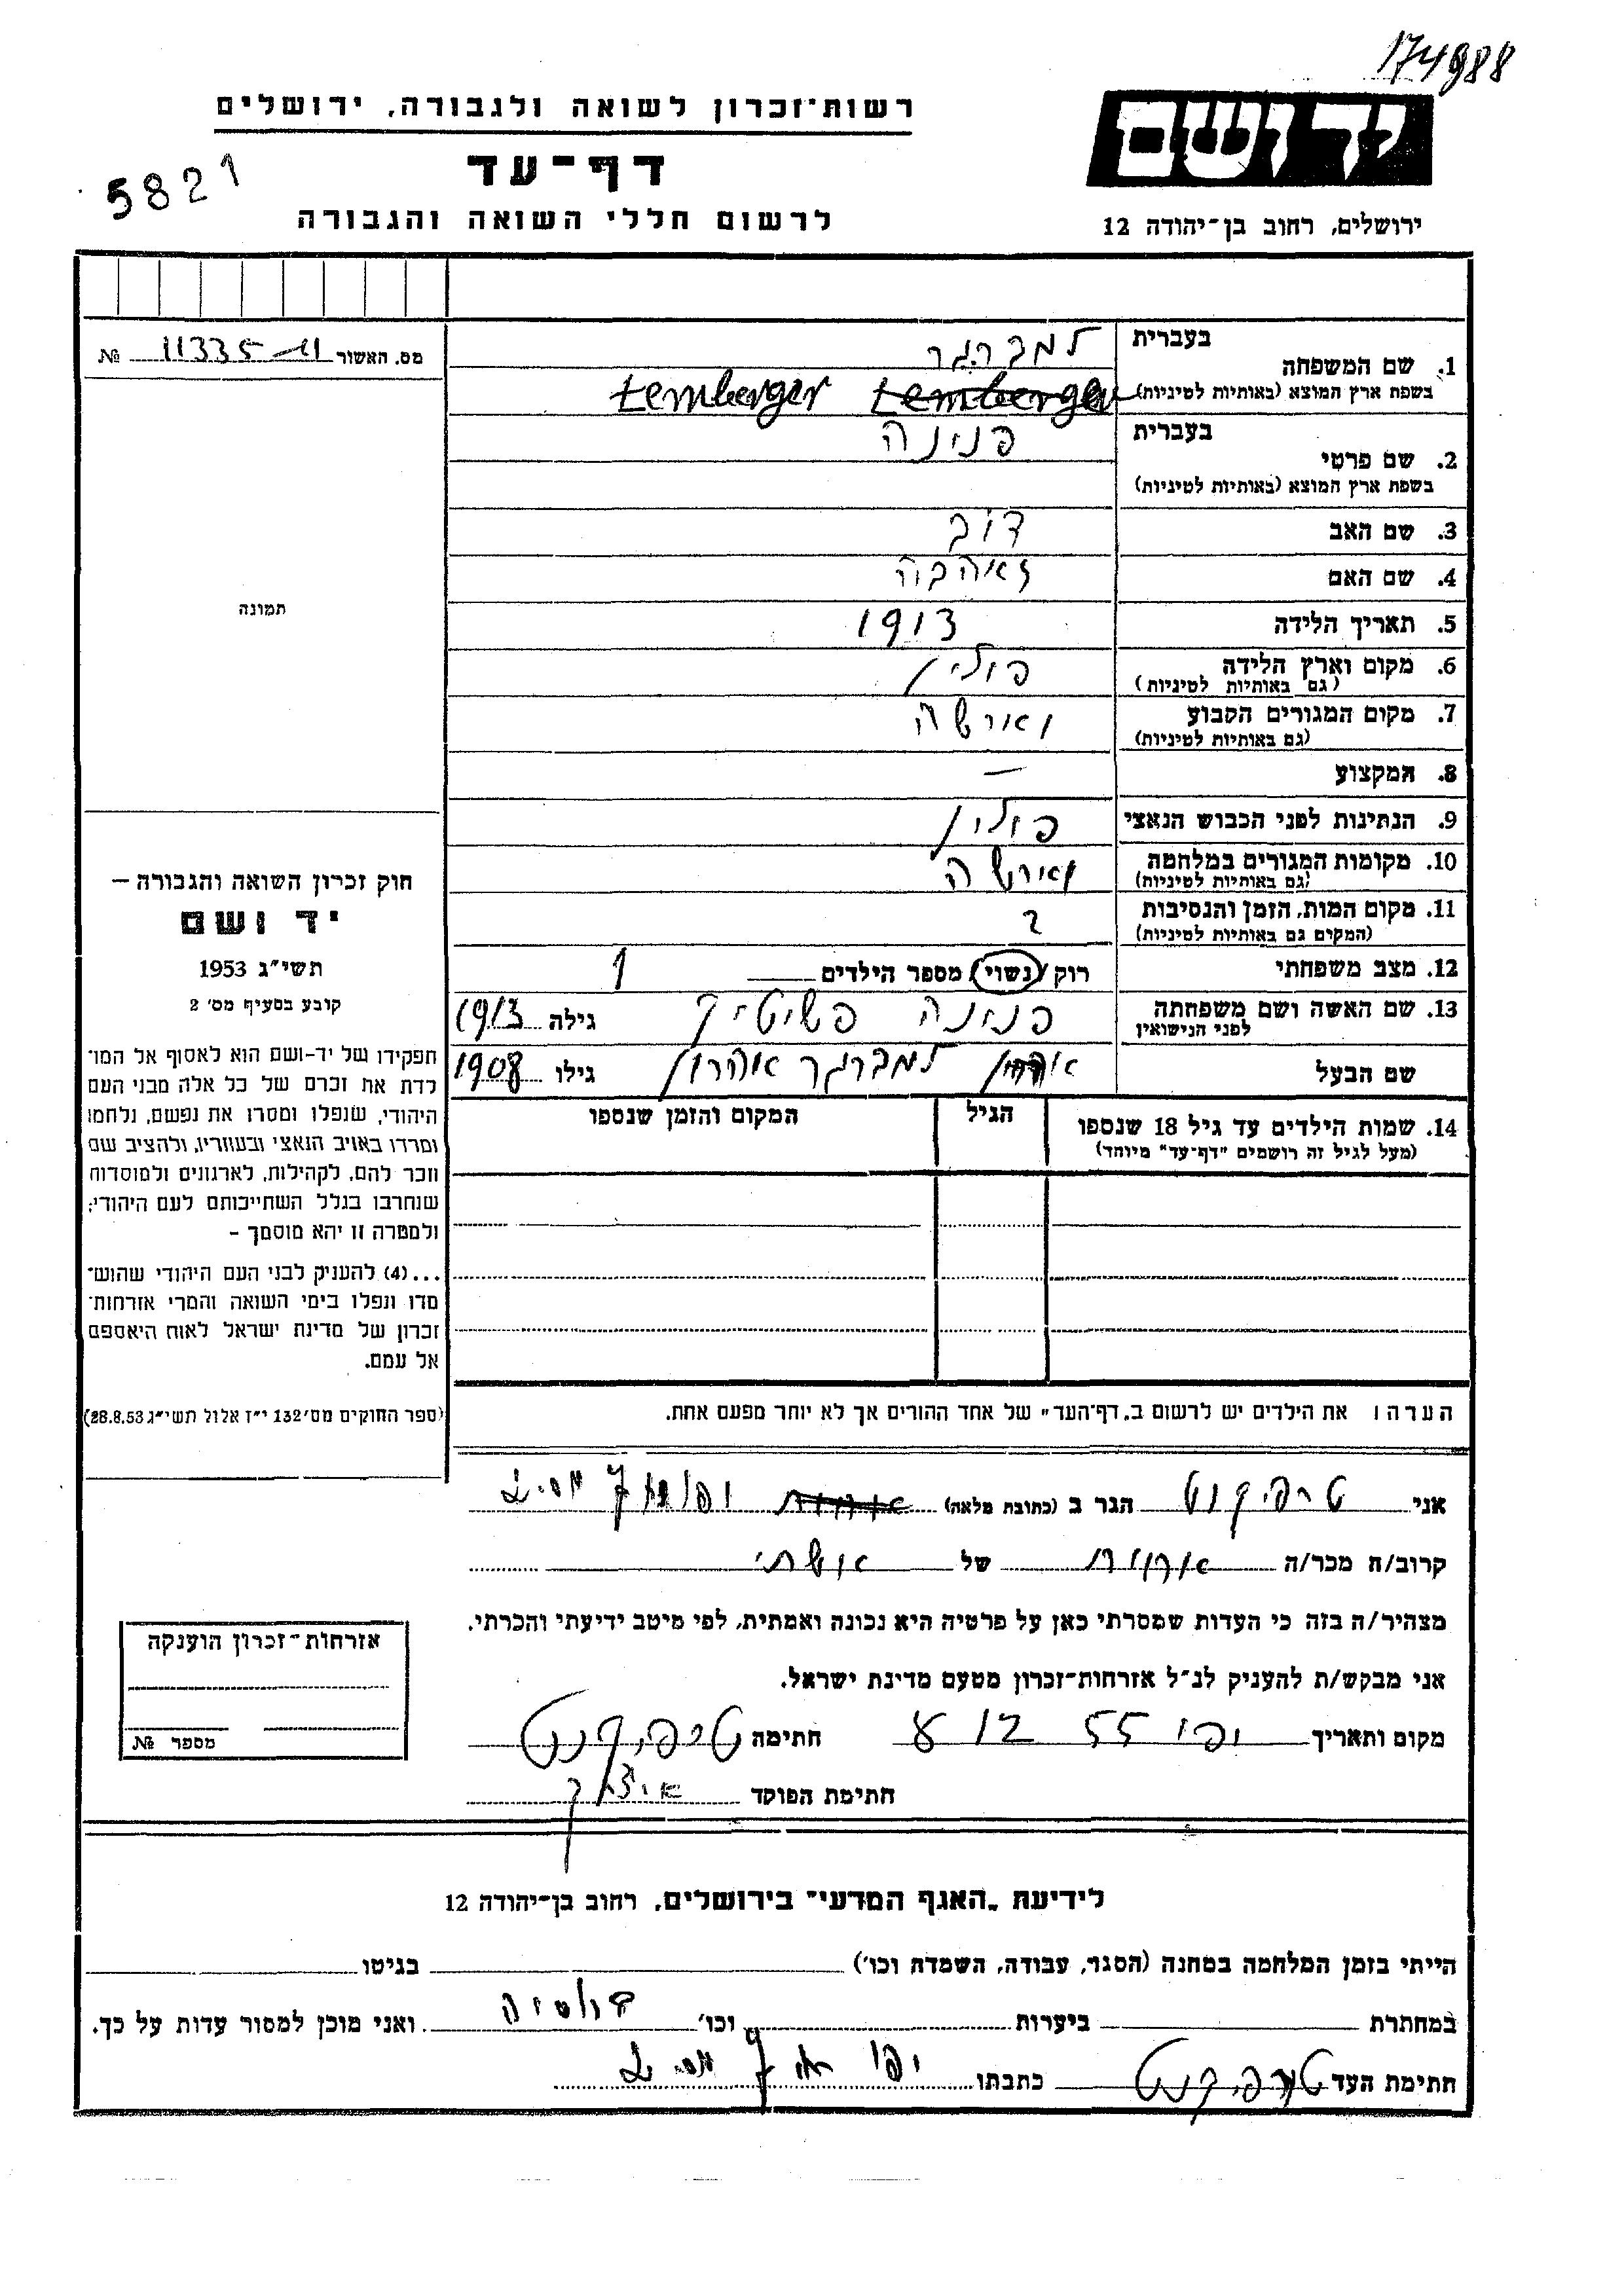 174988
רשות־זכרון לשואה ולגבורה, ירושלים
יד ושם
דף־עד
5821
לרשום חללי השואה והגבורה
ירושלים, רחוב בן־יהודה 12
מס. האשור 11335 №
1. שם המשפחה
בעברית למברגר
בשפת ארץ המוצא (באותיות לטיניות) Lemberger Lemberger
2. שם פרטי
בעברית פנינה
בשפת ארץ המוצא (באותיות לטיניות)
3. שם האב דוב
4. שם האם
5. תאריך הלידה 1913
6. מקום וארץ הלידה פולין
(גם באותיות לטיניות)
7. מקום המגורים הקבוע ווארשה
(גם באותיות לטיניות)
8. המקצוע —
9. הנתינות לפני הכבוש הנאצי פולין
10. מקומות המגורים במלחמה ווארשה
(גם באותיות לטיניות)
11. מקום המות, הזמן והנסיבות ?
(המקום גם באותיות לטיניות)
12. מצב משפחתי רוק / נשוי / מספר הילדים 1
13. שם האשה ושם משפחתה פנינה גילה 1913
לפני הנישואין
שם הבעל למברגר אהרון גילו 1908
14. שמות הילדים עד גיל 18 שנספו הגיל המקום והזמן שנספו
(מעל לגיל זה רושמים "דף־עד" מיוחד)
תמונה
חוק זכרון השואה והגבורה —
יד ושם
תשי"ג 1953
קובע בסעיף מס' 2
תפקידו של יד-ושם הוא לאסוף אל המו־
לדת את זכרם של כל אלה מבני העם
היהודי, שנפלו ומסרו את נפשם, נלחמו
ומרדו באויב הנאצי ובעוזריו, ולהציב שם
וזכר להם, לקהילות, לארגונים ולמוסדות
שנחרבו בגלל השתייכותם לעם היהודי;
ולמטרה זו יהא מוסמך -
...(4) להעניק לבני העם היהודי שהוש־
מדו ונפלו בימי השואה והמרי אזרחות־
זכרון של מדינת ישראל לאות היאספם
אל עמם.
(ספר החוקים מס' 132 י"ז אלול תשי"ג 28.8.53)
הערה: את הילדים יש לרשום ב„דף־העד" של אחד ההורים אך לא יותר מפעם אחת.
אני הגר ב (כתובת מלאה)
קרוב/ה מכר/ה של
מצהיר/ה בזה כי העדות שמסרתי כאן על פרטיה היא נכונה ואמתית, לפי מיטב ידיעתי והכרתי.
אני מבקש/ת להעניק לנ"ל אזרחות־זכרון מטעם מדינת ישראל.
מקום ותאריך יפו 55 12 חתימה
חתימת הפוקד
אזרחות־זכרון הוענקה
מספר №
לידיעת „האגף המדעי" בירושלים, רחוב בן־יהודה 12
הייתי בזמן המלחמה במחנה (הסגר, עבודה, השמדה וכו') בגיטו
במחתרת ביערות וכו' ואני מוכן למסור עדות על כך.
חתימת העד כתבתו יפו